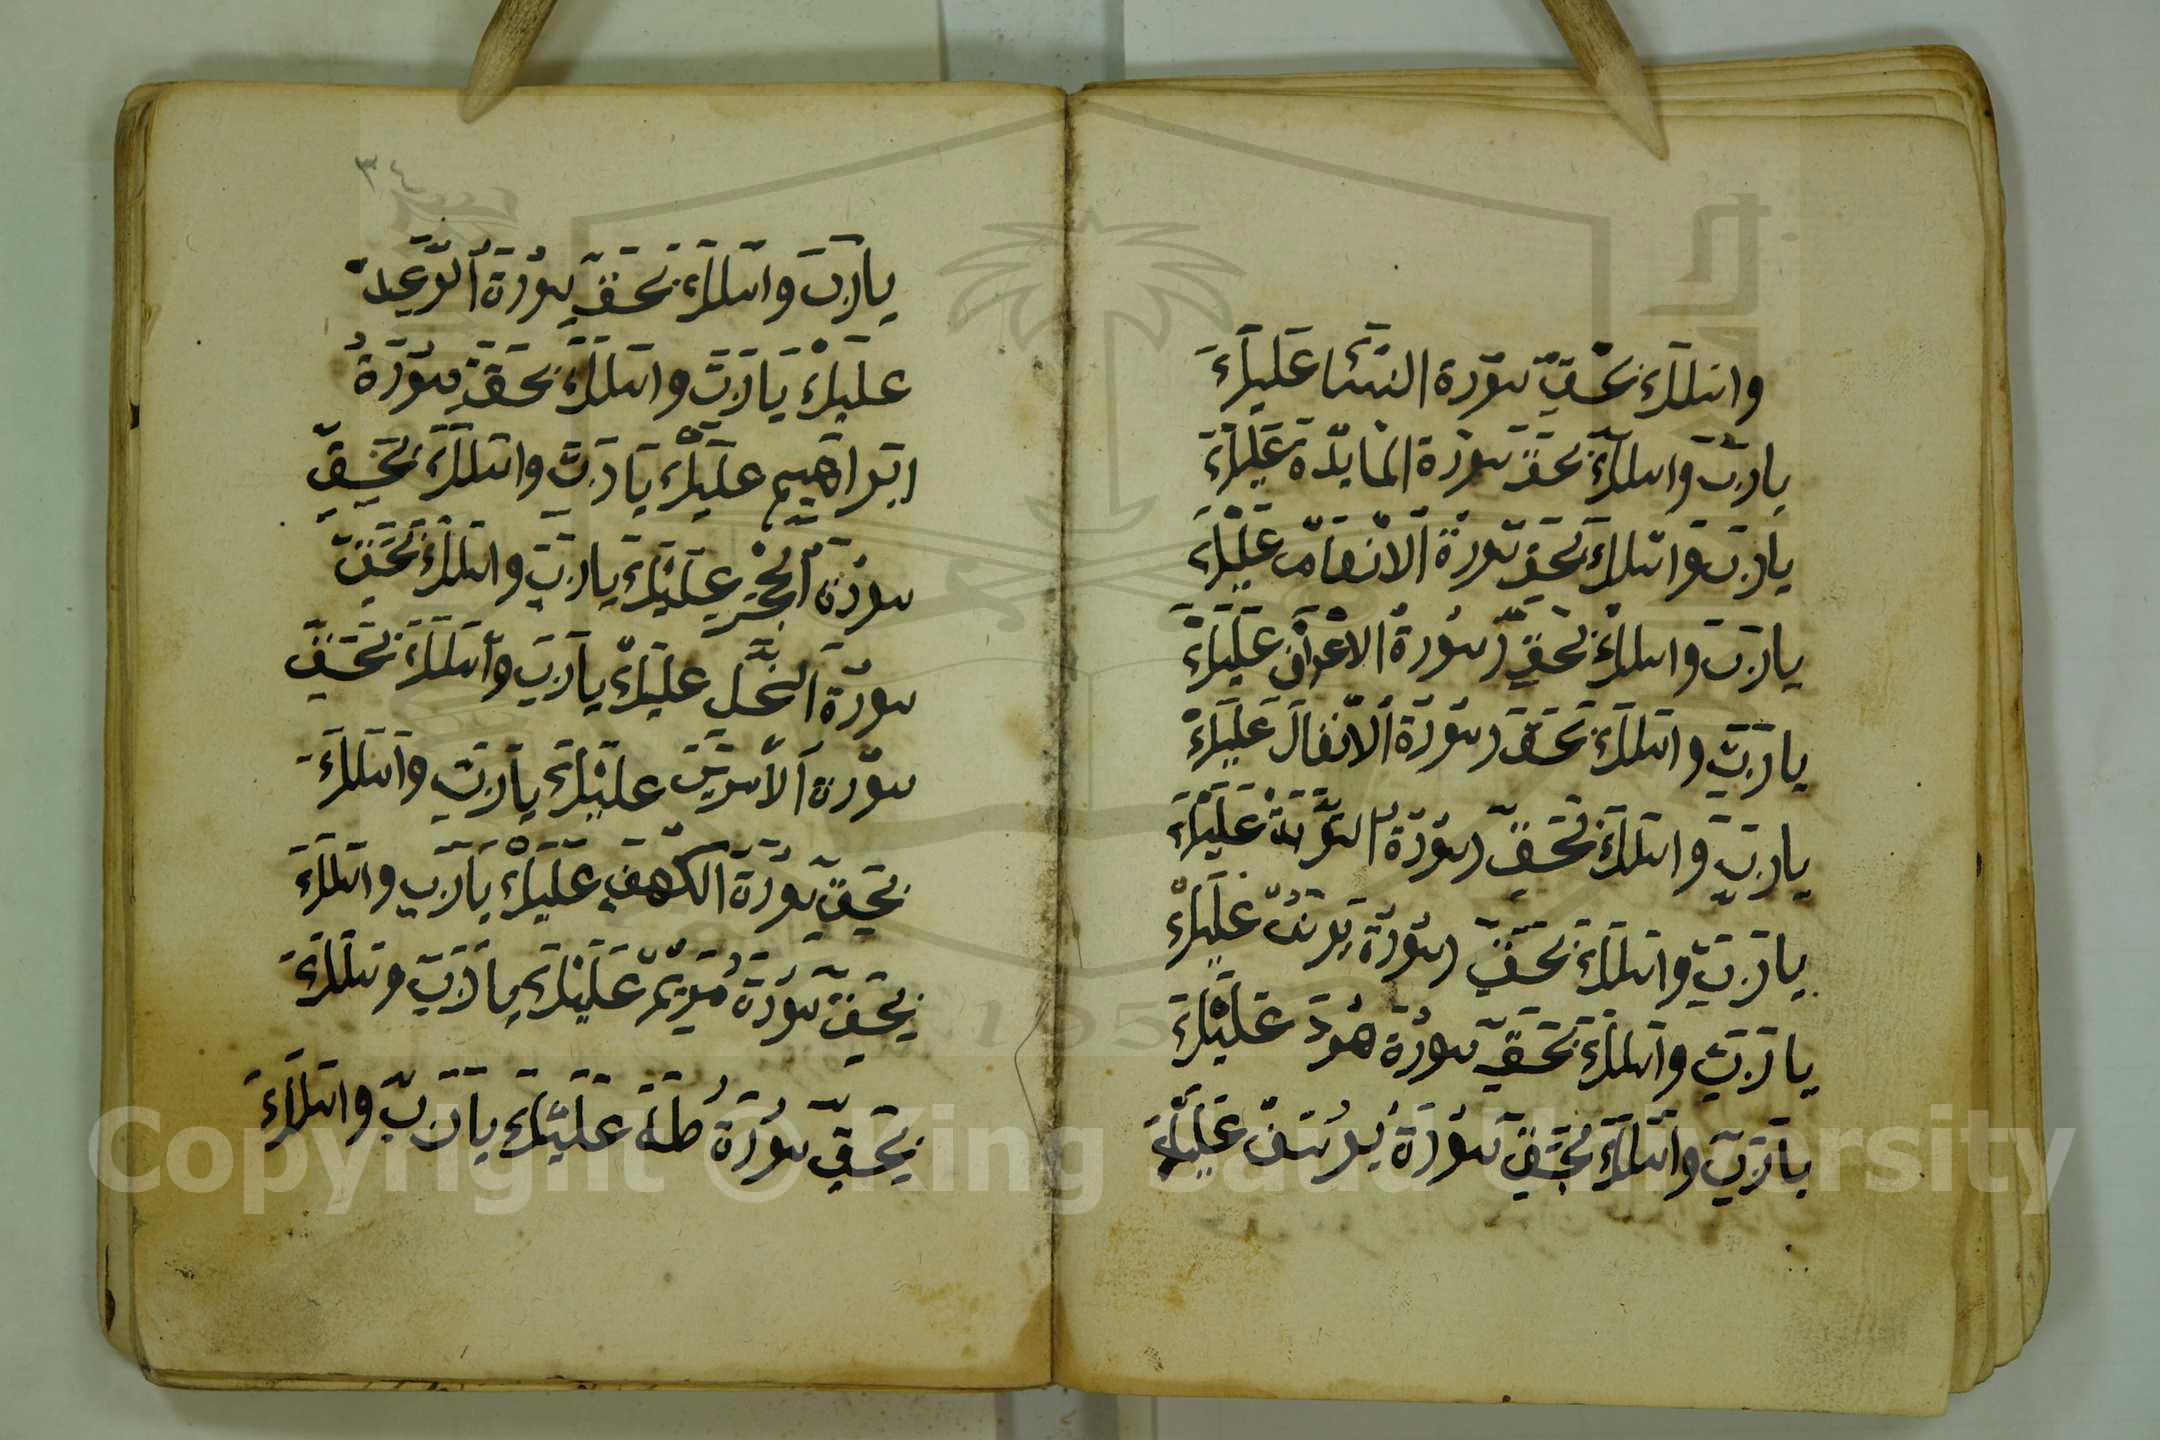 واسالك بحق سورة النسا عليك
يارب واسالك بحق سورة المايدة عليك
يارب واسالك بحق سورة الانعام عليك
يارب واسالك بحق سورة الاعراف عليك
يارب واسالك بحق سورة الانفال عليك
يارب واسالك بحق سورة التوبة عليك
يارب واسالك بحق سورة يونس عليك
يارب واسالك بحق سورة هود عليك
يارب واسالك بحق سورة يوسف عليك
٣٤
يارب واسالك بحق سورة الرعد
عليك يارب واسالك بحق سورة
ابراهيم عليك يارب واسالك بحق
سورة الحجر عليك يارب واسالك بحق
سورة النحل عليك يارب واسالك بحق
سورة الاسرى عليك يارب واسالك
بحق سورة الكهف عليك يارب واسالك
بحق سورة مريم عليك يارب وسالك
بحق سورة طه عليك يارب واسالك
Copyright © King Saud University